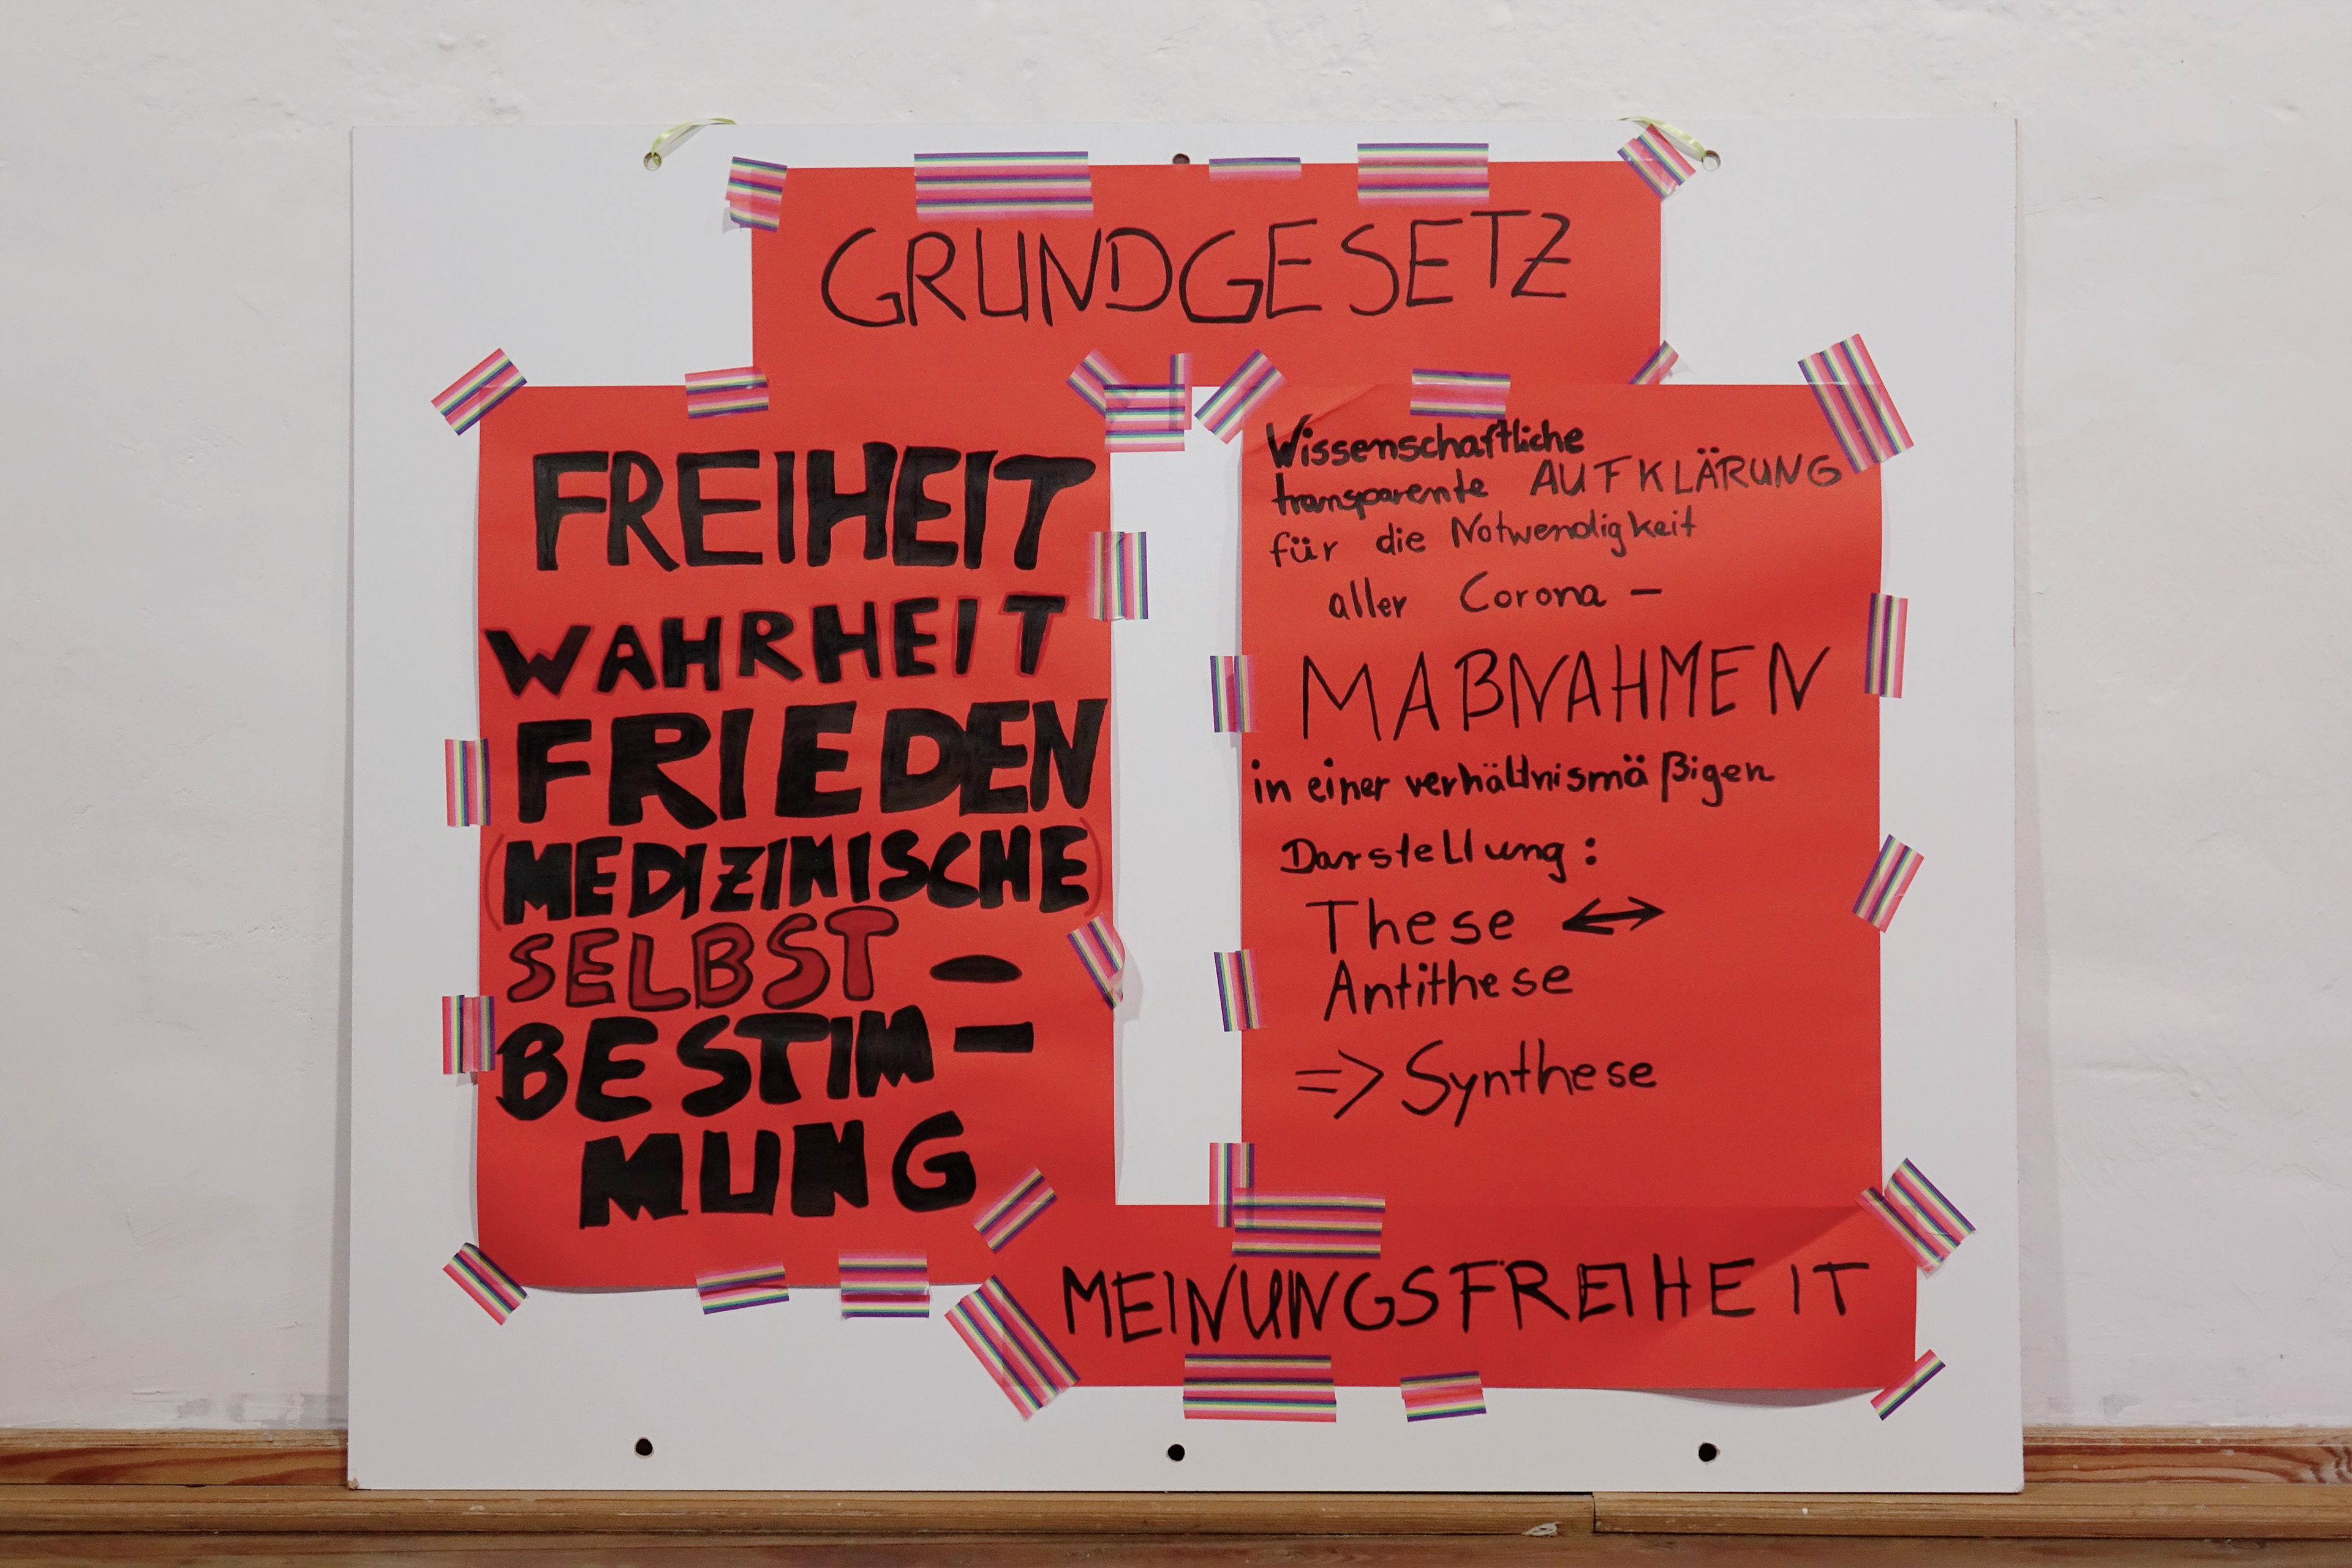 GRUNDGESETZ
FREIHEIT
WAHRHEIT
FRIEDEN
(MEDIZINISCHE)
SELBST-
BESTIM-
MUNG
Wissenschaftliche
transparente AUFKLÄRUNG
für die Notwendigkeit
aller Corona-
MAßNAHMEN
in einer verhältnismäßigen
Darstellung:
These ↔
Antithese
⇒ Synthese
MEINUNGSFREIHEIT